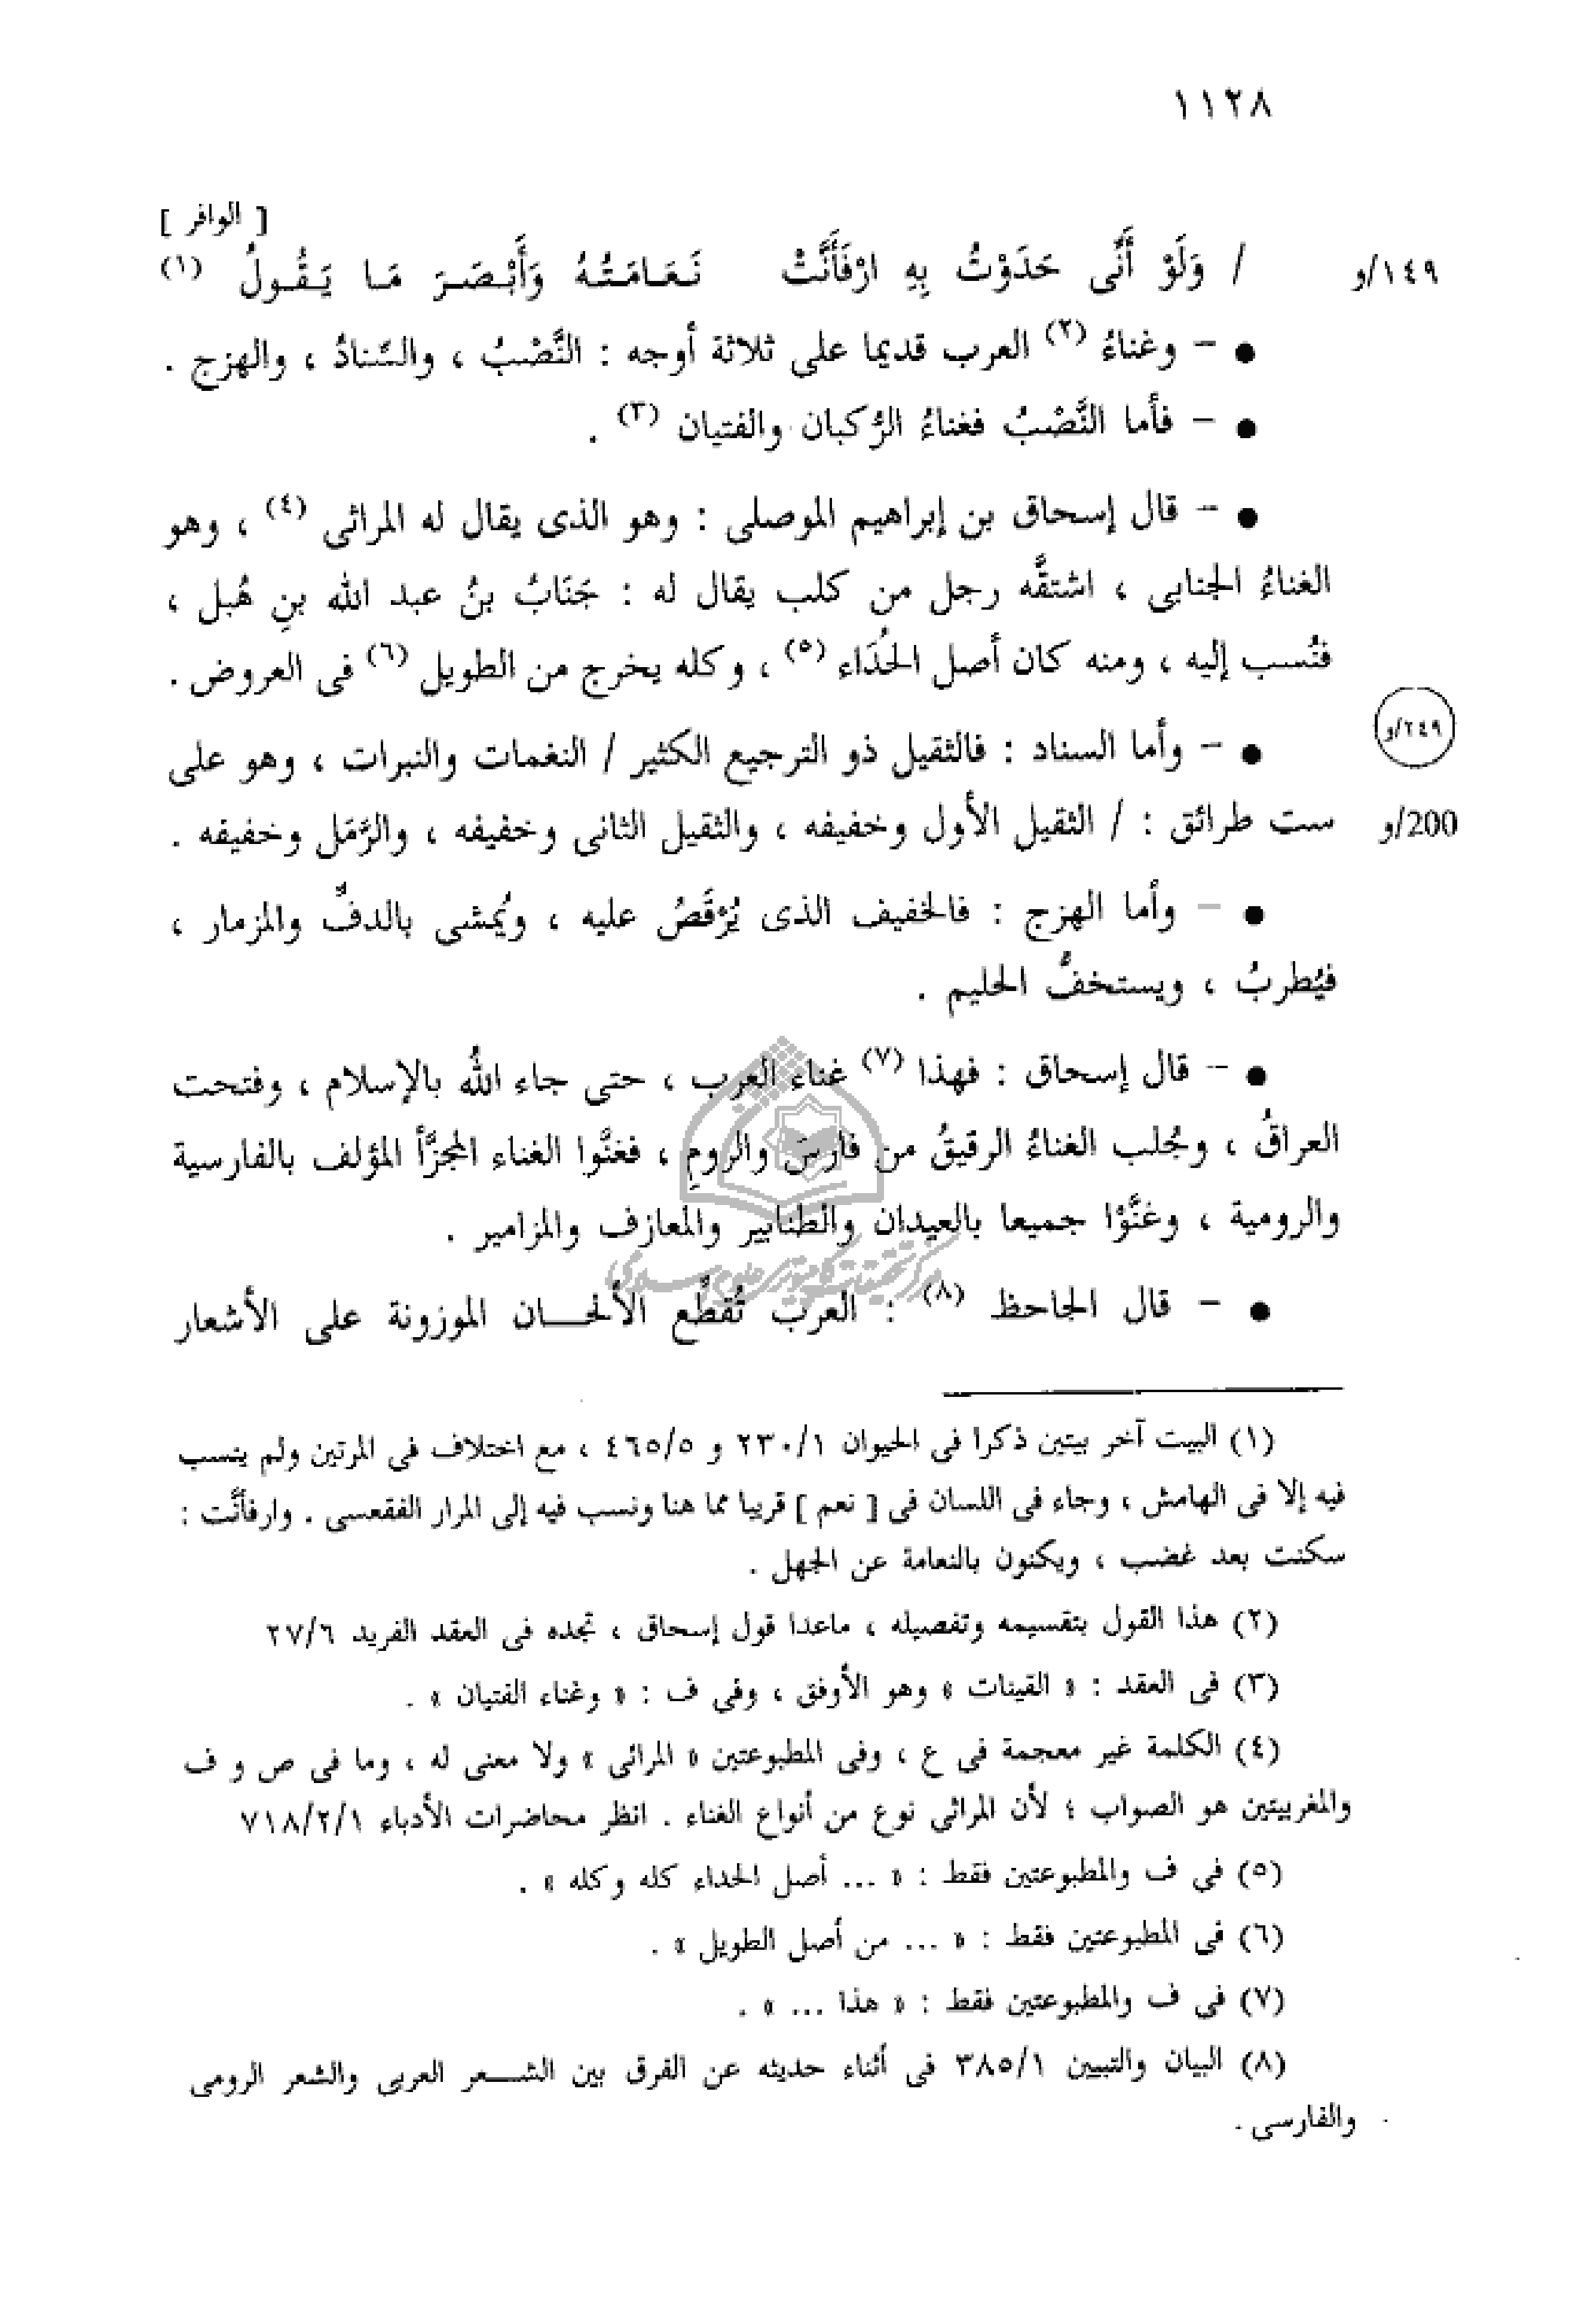 ١١٢٨
[ الوافر ]
١٤٩/و / وَلَوْ أَنِّى حَدَوْتُ بِهِ ارْفَأَنَّتْ نَعَامَتُهُ وَأَبْصَرَ مَا يَقُولُ (١)
● – وغناءُ (٢) العرب قديما على ثلاثة أوجه : النَّصْبُ ، والسِّنادُ ، والهزج .
● – فأما النَّصْبُ فغناءُ الرُّكبان والفتيان (٣) .
● – قال إسحاق بن إبراهيم الموصلى : وهو الذى يقال له المراثى (٤) ، وهو
الغناءُ الجنابى ، اشتقَّه رجل من كلب يقال له : جَنَابُ بنُ عبد الله بنِ هُبل ،
فنُسب إليه ، ومنه كان أصل الحُدَاء (٥) ، وكله يخرج من الطويل (٦) فى العروض .
٢٤٩/و
● – وأما السناد : فالثقيل ذو الترجيع الكثير / النغمات والنبرات ، وهو على
200/و ست طرائق : / الثقيل الأول وخفيفه ، والثقيل الثانى وخفيفه ، والرَّمَل وخفيفه .
● – وأما الهزج : فالخفيف الذى يُرْقَصُ عليه ، ويُمشى بالدفِّ والمزمار ،
فيُطربُ ، ويستخفُّ الحليم .
● – قال إسحاق : فهذا (٧) غناء العرب ، حتى جاء اللهُ بالإسلام ، وفتحت
العراقُ ، وجُلب الغناءُ الرقيقُ من فارسَ والرومِ ، فغنَّوا الغناء المجزَّأ المؤلف بالفارسية
والرومية ، وغنَّوْا جميعا بالعيدان والطنابير والمعازف والمزامير .
مرکز تحقیقات کامپیوتری علوم اسلامی
● – قال الجاحظ (٨) : العرب تُقطِّع الألحـــان الموزونة على الأشعار
(١) البيت آخر بيتين ذكرا فى الحيوان ٢٣٠/١ و ٤٦٥/٥ ، مع اختلاف فى المرتين ولم ينسب
فيه إلا فى الهامش ، وجاء فى اللسان فى [ نعم ] قريبا مما هنا ونسب فيه إلى المرار الفقعسى . وارفأنَّت :
سكنت بعد غضب ، ويكنون بالنعامة عن الجهل .
(٢) هذا القول بتقسيمه وتفصيله ، ماعدا قول إسحاق ، تجده فى العقد الفريد ٢٧/٦
(٣) فى العقد : « القينات » وهو الأوفق ، وفى ف : « وغناء الفتيان » .
(٤) الكلمة غير معجمة فى ع ، وفى المطبوعتين « المرائى » ولا معنى له ، وما فى ص و ف
والمغربيتين هو الصواب ؛ لأن المراثى نوع من أنواع الغناء . انظر محاضرات الأدباء ٧١٨/٢/١
(٥) فى ف والمطبوعتين فقط : « ... أصل الحداء كله وكله » .
(٦) فى المطبوعتين فقط : « ... من أصل الطويل » .
(٧) فى ف والمطبوعتين فقط : « هذا ... » .
(٨) البيان والتبيين ٣٨٥/١ فى أثناء حديثه عن الفرق بين الشـــعر العربى والشعر الرومى
والفارسى .